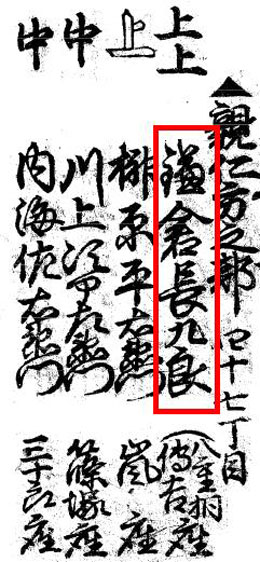 ▲親仁方之部 四十七丁目
上上 鎌倉長九郎 八重桐座 伝吉座
上 榊原平右衛門 嵐座
中 川上次郎右衛門 篠塚座
中 内海佐右衛門 三十郎座